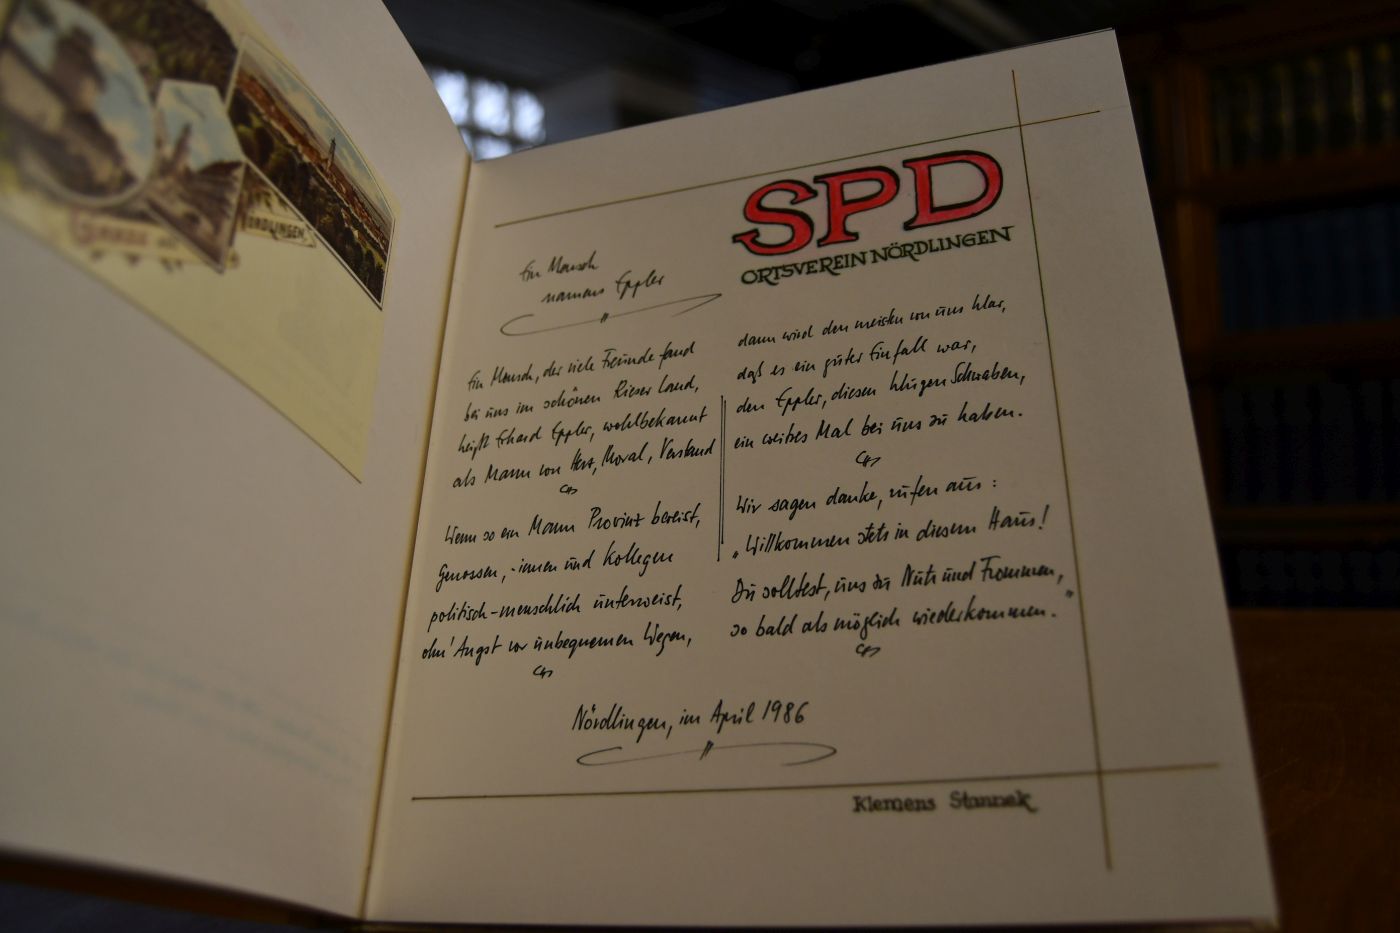 NÖRDLINGEN
SPD
ORTSVEREIN NÖRDLINGEN
Ein Mensch
namens Eppler
Ein Mensch, der viele Freunde fand
bei uns im schönen Rieser Land,
heißt Erhard Eppler, wohlbekannt
als Mann von Herz, Moral, Verstand
Wenn so ein Mann Provinz bereist,
Genossen, -innen und Kollegen
politisch-menschlich unterweist,
ohn' Angst vor unbequemen Wegen,
dann wird den meisten von uns klar,
daß es ein guter Einfall war,
den Eppler, diesen klugen Schwaben,
ein weitres Mal bei uns zu haben.
Wir sagen danke, rufen aus:
„Willkommen stets in diesem Haus!
Du solltest, uns zu Nutz und Frommen,
so bald als möglich wiederkommen."
Nördlingen, im April 1986
Klemens Stannek